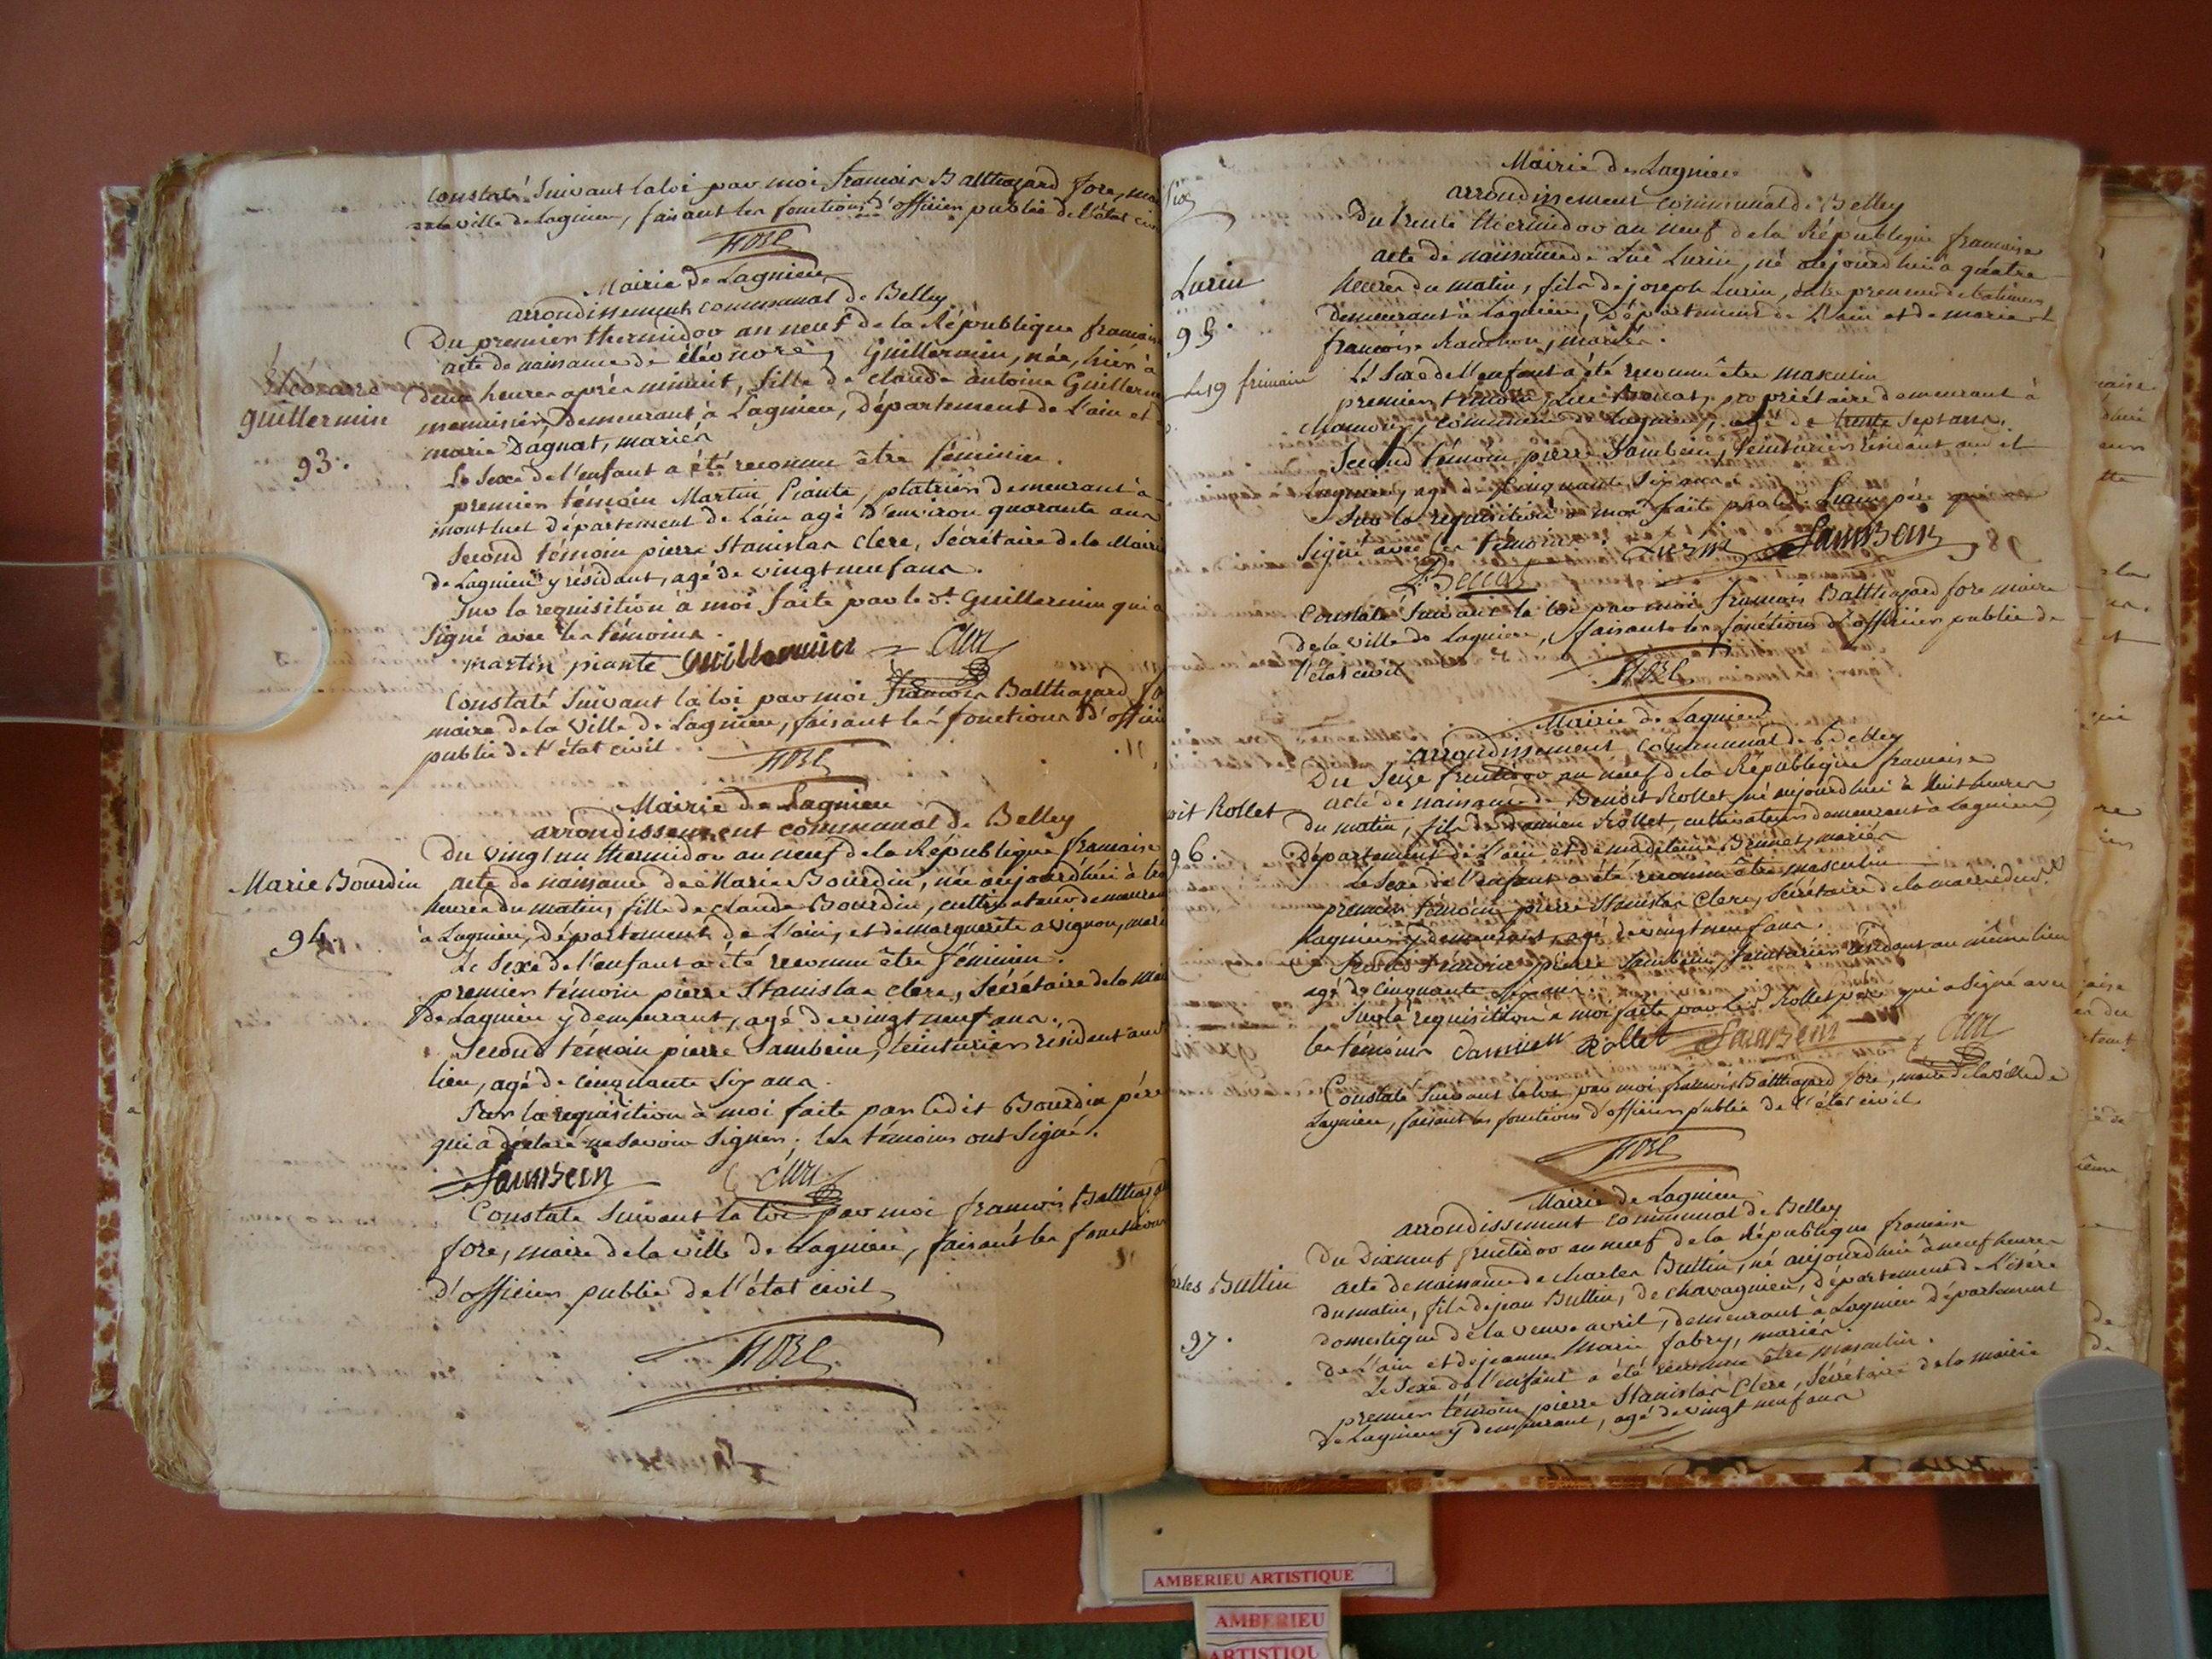 Constaté Suivant la loi par moi, francois Balthazard fore, mai
de la ville de Lagnieu, faisant les fonctions d'officier public de l'état civ
FORE
Mairie de Lagnieu
arrondissement communal de Belley
Du premier thermidor an neuf de la République francaise
acte de naissance de éléonore, Guillermin, née, hier à
deux heures après minuit, fille de claude antoine Guillerm
menuisier, demeurant à Lagnieu, Département de L'ain et d
marie Dagnat, mariés
Guillermin
93.
Le Sexe de l'enfant a été reconnu être féminin.
premier témoin Martin Piante, platrier demeurant à
montluel département de L'ain agé d'environ quarante ans
Second témoin pierre Stanislas Clerc, Sécrétaire de la Mairie
de Lagnieu y résidant, agé de vingt neuf ans.
Sur la requisition à moi faite par le Sr. Guillermin qui a
Signé avec les témoins.
martin piante Guillermin Clerc
Constaté Suivant la loi par moi francois Balthazard fo
maire de la Ville de Lagnieu, faisant les fonctions d'offici
public de l'état civil
FORE
Mairie de Lagnieu
arrondissement communal de Belley
Du vingt un thermidor an neuf de la République francaise
Marie Bourdin
acte de naissance de Marie Bourdin, née aujourd'hui à tro
heures du matin, fille de claude Bourdin, cultivateur demeuran
94.
à Lagnieu, Département de L'ain, et de marguerite avignon, mari
Le Sexe de l'enfant a été reconnu être féminin.
premier témoin pierre Stanislas Clerc, Sécrétaire de la Mai
de Lagnieu y demeurant, agé de vingt neuf ans.
Second témoin pierre Sambein, teinturier résident au
lieu, agé de cinquante Six ans.
Sur la requisition à moi faite par ledit Bourdin père
qui a déclaré ne savoir Signer; les témoins ont Signé.
Sambein Clerc
Constaté Suivant la loi par moi francois Balthaza
fore, maire de la ville de Lagnieu, faisant les fonctions
d'officier public de l'état civil
FORE
Mairie de Lagnieu
arrondissement communal de Belley
Du trente thermidor an neuf de la République francaise
acte de naissance de Luc Lurin, né aujourd'hui à quatre
Lurin
heures du matin, fils de joseph Lurin, entrepreneur de batimens,
demeurant à Lagnieu, Département de L'ain et de marie
95.
francoise, mariés.
Le 19 frimaire
Le Sexe de l'enfant a été reconnu être masculin
premier témoin Luc, propriétaire demeurant à
commune de Lagnieu, agé de trente Sept ans.
Second témoin pierre Sambein, teinturier résidant au
Lagnieu, agé de Cinquante Six ans.
Sur la requisition à moi faite par le Lurin père qui a
Signé avec les témoins. Lurin Sambein
Constaté Suivant la loi par moi francois Balthazard fore maire
de la ville de Lagnieu, faisant les fonctions d'officier public de
l'état civil
FORE
Mairie de Lagnieu
arrondissement communal de Belley
Du Seize fructidor an neuf de la République francaise
oit Rollet
acte de naissance de Benoit Rollet, né aujourd'hui à huit heures
du matin, fils de damien Rollet, cultivateur demeurant à Lagnieu,
96.
Département de L'ain et de madelaine Brunet, mariés
Le Sexe de l'enfant a été reconnu être masculin
premier témoin pierre Stanislas Clerc, Sécrétaire de la mairie dud.
Lagnieu y demeurant, agé de vingt neuf ans.
Second témoin pierre Sambein, teinturier résidant, au même lieu
agé de Cinquante Six ans.
Sur la requisition à moi faite par le Sr Rollet père qui a Signé avec
les témoins damien Rollet Sambein Clerc
Constaté Suivant la loi, par moi francois Balthazard fore, maire de la ville de
Lagnieu, faisant les fonctions d'officier public de l'état civil
FORE
Mairie de Lagnieu
arrondissement communal de Belley
Du Dix neuf fructidor an neuf de la République francaise
arles Buttin
acte de naissance de charles Buttin, né aujourd'hui à neuf heures
du matin, fils de jean Buttin, de chavagnieu, département de L'isére
domestique de la veuve avril, demeurant à Lagnieu département
97.
de L'ain et de jeanne Marie fabry, mariés.
Le Sexe de l'enfant a été reconnu être masculin.
premier témoin pierre Stanislas Clerc, Sécrétaire de la mairie
de Lagnieu y demeurant, agé de vingt neuf ans
AMBERIEU ARTISTIQUE
AMBERIEU
ARTISTIQU